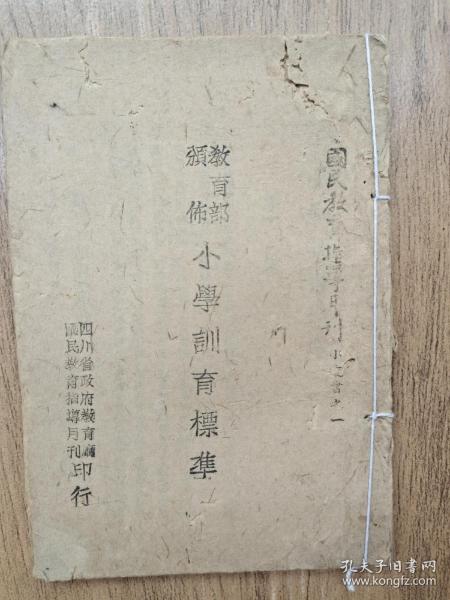 國民教育指導月刊小叢書之一
教育部
頒佈
小學訓育標準
四川省政府教育廳
國民教育指導月刊
印行
孔夫子旧书网
www.kongfz.com